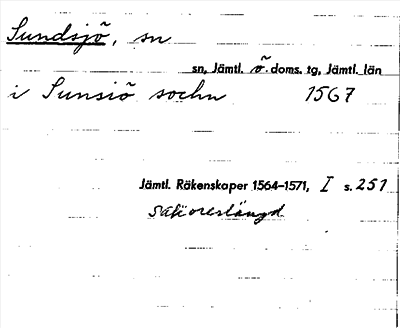 Sundsjö, sn
sn, Jämtl. ö. doms. tg, Jämtl. län
i Sunsiö sochn 1567
Jämtl. Räkenskaper 1564–1571, I s. 251
Saköreslängd